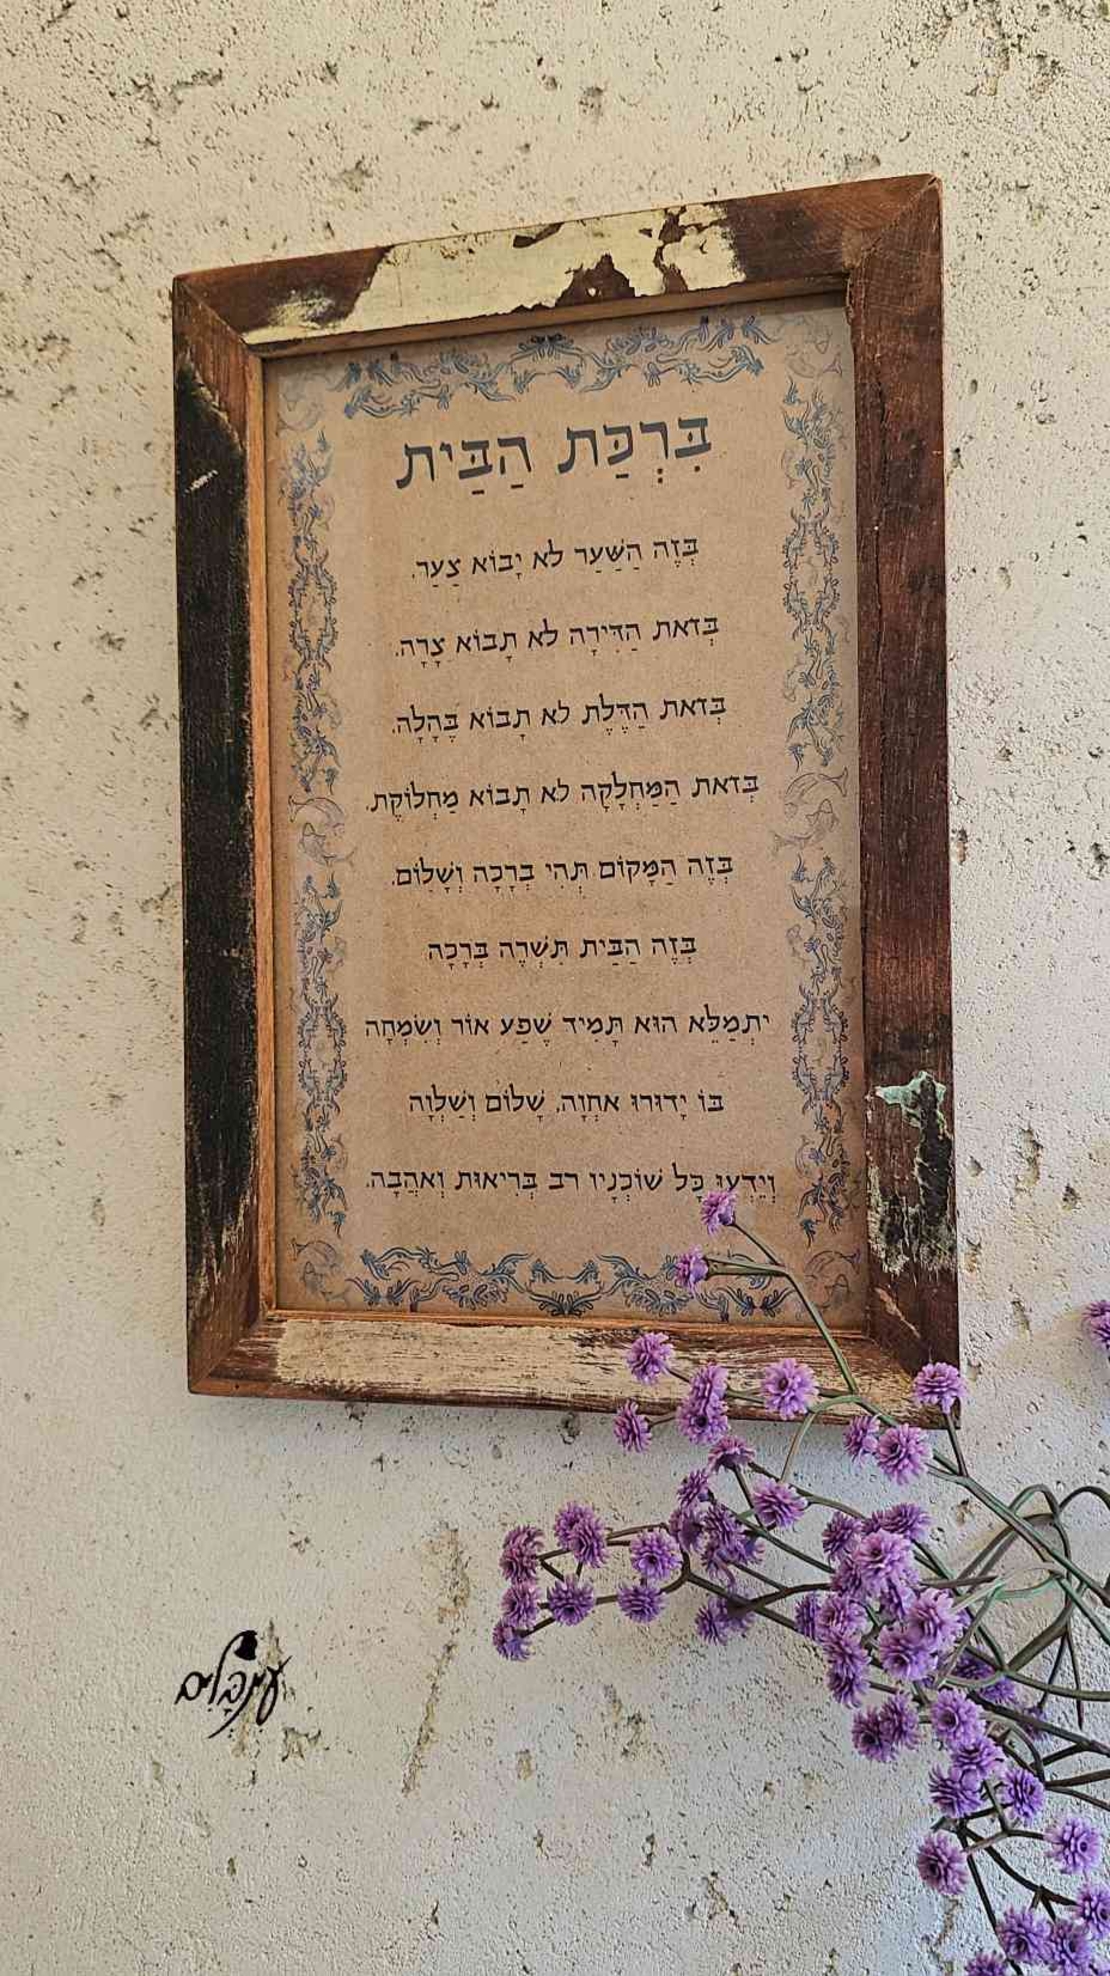 בִּרְכַּת הַבַּיִת
בְּזֶה הַשַּׁעַר לֹא יָבוֹא צַעַר.
בְּזֹאת הַדִּירָה לֹא תָבוֹא צָרָה.
בְּזֹאת הַדֶּלֶת לֹא תָבוֹא בֶּהָלָה.
בְּזֹאת הַמַּחְלָקָה לֹא תָבוֹא מַחְלוֹקֶת.
בְּזֶה הַמָּקוֹם תְּהִי בְרָכָה וְשָׁלוֹם.
בְּזֶה הַבַּיִת תִּשְׁרֶה בְּרָכָה
יִתְמַלֵּא הוּא תָּמִיד שֶׁפַע אוֹר וְשִׂמְחָה
בּוֹ יָדוּרוּ אַחְוָה, שָׁלוֹם וְשַׁלְוָה
וְיֵדְעוּ כָּל שׁוֹכְנָיו רֹב בְּרִיאוּת וְאַהֲבָה.